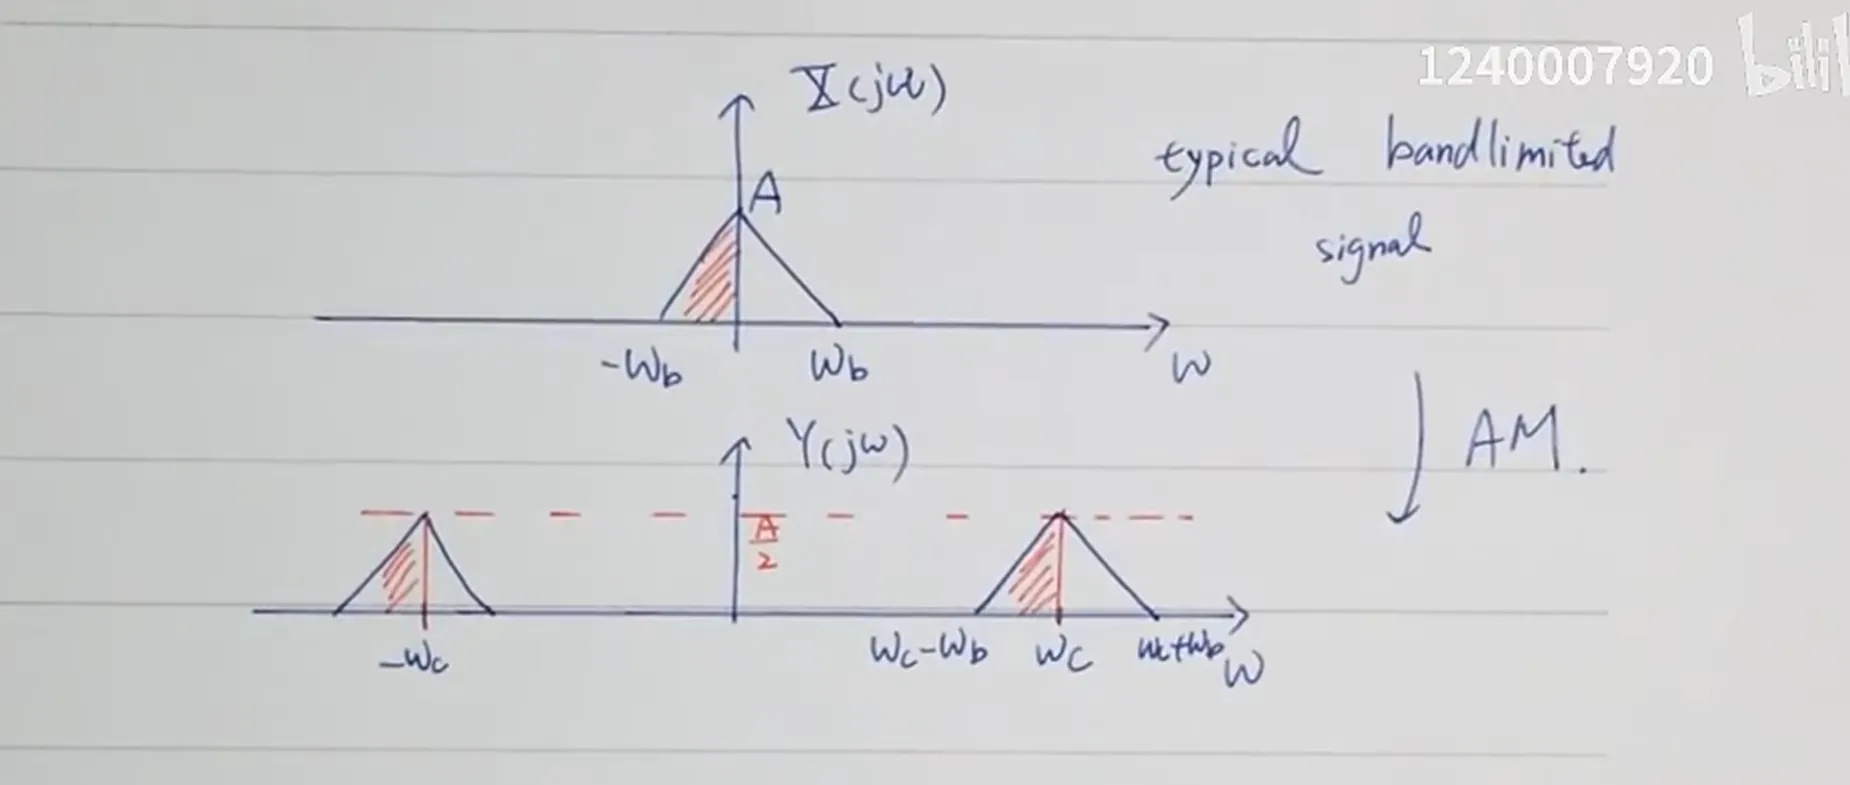 1240007920 bili
X(jω)
A
typical bandlimited
signal
-ωb ωb ω
Y(jω)
AM.
A/2
-ωc ωc-ωb ωc ωc+ωb ω